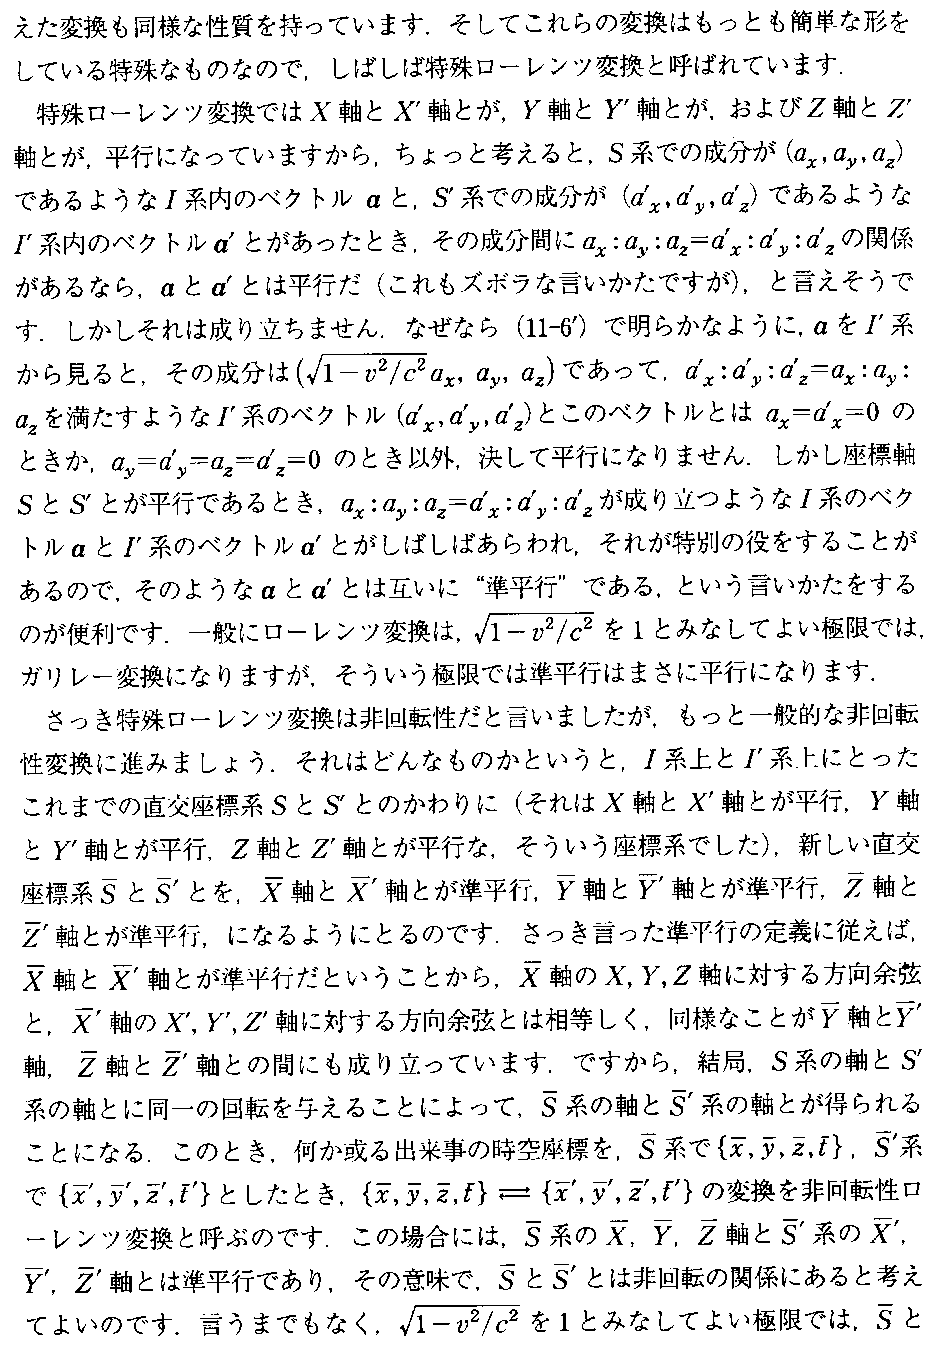 えた変換も同様な性質を持っています．そしてこれらの変換はもっとも簡単な形を
している特殊なものなので，しばしば特殊ローレンツ変換と呼ばれています．
　特殊ローレンツ変換では X 軸と X′ 軸とが，Y 軸と Y′ 軸とが，および Z 軸と Z′
軸とが，平行になっていますから，ちょっと考えると，S 系での成分が (aₓ, a_y, a_z)
であるような I 系内のベクトル a と，S′ 系での成分が (a′ₓ, a′_y, a′_z) であるような
I′ 系内のベクトル a′ とがあったとき，その成分間に aₓ : a_y : a_z = a′ₓ : a′_y : a′_z の関係
があるなら，a と a′ とは平行だ（これもズボラな言いかたですが），と言えそうで
す．しかしそれは成り立ちません．なぜなら (11-6′) で明らかなように，a を I′ 系
から見ると，その成分は (√(1−v²/c²) aₓ, a_y, a_z) であって，a′ₓ : a′_y : a′_z = aₓ : a_y :
a_z を満たすような I′ 系のベクトル (a′ₓ, a′_y, a′_z) とこのベクトルとは aₓ = a′ₓ = 0 の
ときか，a_y = a′_y = a_z = a′_z = 0 のとき以外，決して平行になりません．しかし座標軸
S と S′ とが平行であるとき，aₓ : a_y : a_z = a′ₓ : a′_y : a′_z が成り立つような I 系のベク
トル a と I′ 系のベクトル a′ とがしばしばあらわれ，それが特別の役をすることが
あるので，そのような a と a′ とは互いに “準平行” である，という言いかたをする
のが便利です．一般にローレンツ変換は，√(1−v²/c²) を 1 とみなしてよい極限では，
ガリレー変換になりますが，そういう極限では準平行はまさに平行になります．
　さっき特殊ローレンツ変換は非回転性だと言いましたが，もっと一般的な非回転
性変換に進みましょう．それはどんなものかというと，I 系上と I′ 系上にとった
これまでの直交座標系 S と S′ とのかわりに（それは X 軸と X′ 軸とが平行，Y 軸
と Y′ 軸とが平行，Z 軸と Z′ 軸とが平行な，そういう座標系でした），新しい直交
座標系 S̄ と S̄′ とを，X̄ 軸と X̄′ 軸とが準平行，Ȳ 軸と Ȳ′ 軸とが準平行，Z̄ 軸と
Z̄′ 軸とが準平行，になるようにとるのです．さっき言った準平行の定義に従えば，
X̄ 軸と X̄′ 軸とが準平行だということから，X̄ 軸の X, Y, Z 軸に対する方向余弦
と，X̄′ 軸の X′, Y′, Z′ 軸に対する方向余弦とは相等しく，同様なことが Ȳ 軸と Ȳ′
軸，Z̄ 軸と Z̄′ 軸との間にも成り立っています．ですから，結局，S 系の軸と S′
系の軸とに同一の回転を与えることによって，S̄ 系の軸と S̄′ 系の軸とが得られる
ことになる．このとき，何か或る出来事の時空座標を，S̄ 系で {x̄, ȳ, z̄, t̄}，S̄′ 系
で {x̄′, ȳ′, z̄′, t̄′} としたとき，{x̄, ȳ, z̄, t̄} ⇌ {x̄′, ȳ′, z̄′, t̄′} の変換を非回転性ロ
ーレンツ変換と呼ぶのです．この場合には，S̄ 系の X̄, Ȳ, Z̄ 軸と S̄′ 系の X̄′,
Ȳ′, Z̄′ 軸とは準平行であり，その意味で，S̄ と S̄′ とは非回転の関係にあると考え
てよいのです．言うまでもなく，√(1−v²/c²) を 1 とみなしてよい極限では，S̄ と